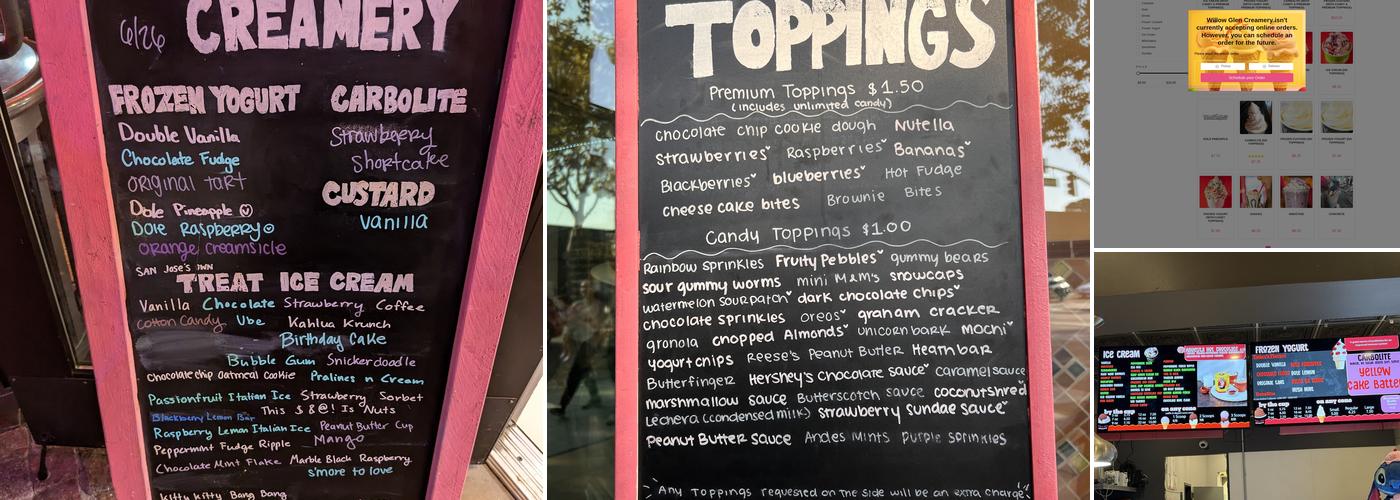 6/26
CREAMERY
FROZEN YOGURT
Double Vanilla
Chocolate Fudge
original tart
Dole Pineapple
Dole Raspberry
orange creamsicle
CARBOLITE
Strawberry
Shortcake
CUSTARD
vanilla
SAN Jose's own
TREAT ICE CREAM
Vanilla Chocolate Strawberry Coffee
Cotton Candy Ube Kahlua Krunch
Birthday Cake
Bubble Gum Snickerdoodle
Chocolate chip Oatmeal Cookie Pralines n Cream
Passionfruit Italian Ice Strawberry Sorbet
Blackberry Lemon Bar This $&@! Is Nuts
Raspberry Lemon Italian Ice Peanut Butter Cup
Peppermint Fudge Ripple Mango
Chocolate Mint Flake Marble Black Raspberry
s'more to love
Kitty Kitty Bang Bang
TOPPINGS
Premium Toppings $1.50
(includes unlimited candy)
chocolate chip cookie dough Nutella
strawberries Raspberries Bananas
Blackberries blueberries Hot Fudge
cheese cake bites Brownie Bites
Candy Toppings $1.00
Rainbow sprinkles Fruity Pebbles gummy bears
sour gummy worms mini M&M's snowcaps
watermelon sour patch dark chocolate chips
chocolate sprinkles oreos graham cracker
granola chopped Almonds unicorn bark mochi
yogurt chips Reese's Peanut Butter Heath bar
Butterfinger Hershey's chocolate sauce caramel sauce
marshmallow sauce Butterscotch sauce coconut shred
Lechera (condensed milk) strawberry sundae sauce
Peanut Butter sauce Andes Mints Purple sprinkles
Any Toppings requested on the side will be an extra charge
Willow Glen Creamery isn't
currently accepting online orders.
However, you can schedule an
order for the future.
Schedule your Order
ICE CREAM
FROZEN YOGURT
CARBOLITE
YELLOW
CAKE BATTER
by the cup
on any cone
by the cup
on any cone